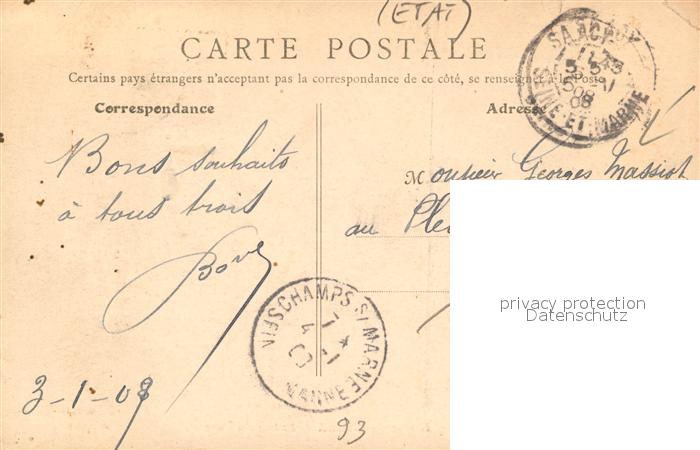 (ETAT)
CARTE POSTALE
Certains pays étrangers n'acceptant pas la correspondance de ce côté, se renseigner à la Poste
Correspondance
Adresse
Bons souhaits
à tous trois
3-1-08
Monsieur Georges Massiot
au
SEINE-ET-MARNE
08
S/MARNE
93
privacy protection
Datenschutz